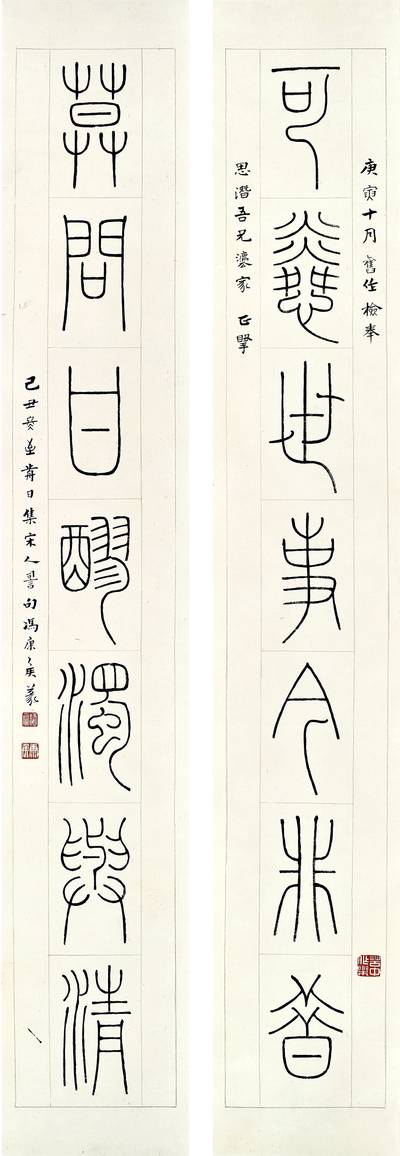 庚寅十月舊作檢奉
思潛吾兄灋家 正
可憐世事今非昔
莫問甘醪濁與清
己丑冬至前日集宋人詞句馮康侯篆